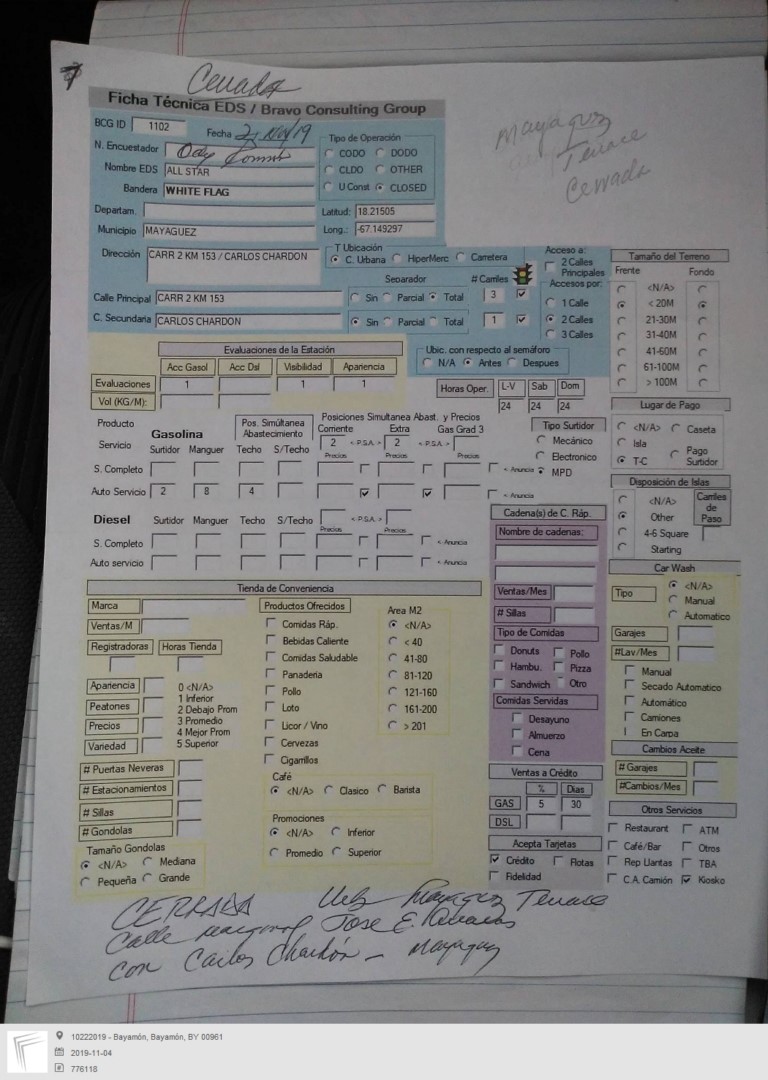 Cerrada
Ficha Técnica EDS / Bravo Consulting Group
BCG ID 1102 Fecha 2 Nov/19
N. Encuestador
Nombre EDS ALL STAR
Bandera WHITE FLAG
Tipo de Operación
CODO DODO
CLDO OTHER
U Const CLOSED
Mayaguez
Terrace
Cerrada
Departam.
Municipio MAYAGUEZ
Latitud: 18.21505
Long.: -67.149297
Dirección CARR 2 KM 153 / CARLOS CHARDON
T Ubicación
C. Urbana HiperMerc Carretera
Separador # Carriles
Calle Principal CARR 2 KM 153 Sin Parcial Total 3
C. Secundaria CARLOS CHARDON Sin Parcial Total 1
Acceso a:
2 Calles
Principales
Accesos por:
1 Calle
2 Calles
3 Calles
Tamaño del Terreno
Frente Fondo
<N/A>
< 20M
21-30M
31-40M
41-60M
61-100M
> 100M
Evaluaciones de la Estación
Acc Gasol Acc Dsl Visibilidad Apariencia
Evaluaciones 1 1 1
Vol (KG/M):
Ubic. con respecto al semáforo
N/A Antes Despues
Horas Oper. L-V Sab Dom
24 24 24
Lugar de Pago
<N/A> Caseta
Isla
T-C Pago
Surtidor
Producto
Servicio Gasolina
Surtidor Manguer
Pos. Simúltanea
Abastecimiento
Techo S/Techo
Posiciones Simultanea Abast. y Precios
Corriente Extra Gas Grad 3
2 < P.S.A. > 2 < P.S.A. >
Precios Precios Precios
S. Completo < Anuncia
Auto Servicio 2 8 4 < Anuncia
Tipo Surtidor
Mecánico
Electronico
MPD
Disposición de Islas
<N/A>
Other
4-6 Square
Starting
Carriles
de
Paso
Diesel Surtidor Manguer Techo S/Techo < P.S.A. >
Precios Precios
S. Completo < Anuncia
Auto servicio < Anuncia
Cadena(s) de C. Ráp.
Nombre de cadenas:
Ventas/Mes
# Sillas
Tipo de Comidas
Donuts Pollo
Hambu. Pizza
Sandwich Otro
Comidas Servidas
Desayuno
Almuerzo
Cena
Car Wash
Tipo <N/A>
Manual
Automatico
Garajes
#Lav/Mes
Manual
Secado Automatico
Automático
Camiones
En Carpa
Cambios Aceite
# Garajes
#Cambios/Mes
Tienda de Conveniencia
Marca
Ventas/M
Registradoras Horas Tienda
Apariencia
Peatones
Precios
Variedad
0 <N/A>
1 Inferior
2 Debajo Prom
3 Promedio
4 Mejor Prom
5 Superior
# Puertas Neveras
# Estacionamientos
# Sillas
# Gondolas
Tamaño Gondolas
<N/A> Mediana
Pequeña Grande
Productos Ofrecidos
Comidas Ráp.
Bebidas Caliente
Comidas Saludable
Panaderia
Pollo
Loto
Licor / Vino
Cervezas
Cigarrillos
Area M2
<N/A>
< 40
41-80
81-120
121-160
161-200
> 201
Café
<N/A> Clasico Barista
Promociones
<N/A> Inferior
Promedio Superior
Ventas a Crédito
% Dias
GAS 5 30
DSL
Acepta Tarjetas
Crédito Flotas
Fidelidad
Otros Servicios
Restaurant ATM
Café/Bar Otros
Rep Llantas TBA
C.A. Camión Kiosko
CERRADA Urb Mayaguez Terrace
Calle Jose E.
con Carlos Chardón - Mayaguez
10222019 - Bayamón, Bayamón, BY 00961
2019-11-04
776118